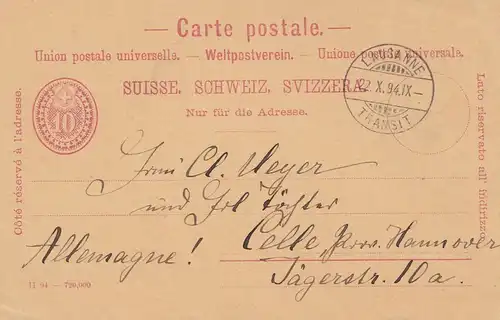 — Carte postale. —
Union postale universelle. — Weltpostverein. — Unione postale universale.
SUISSE. SCHWEIZ. SVIZZERA.
Nur für die Adresse.
Côté réservé à l'adresse.
Lato riservato all' indirizzo.
10
LAUSANNE
22. X. 94. IX —
TRANSIT
Frau Cl. Meyer
und Frl Töchter
Allemagne!
Celle, Prov. Hannover
Jägerstr. 10a.
II 94 — 720,000